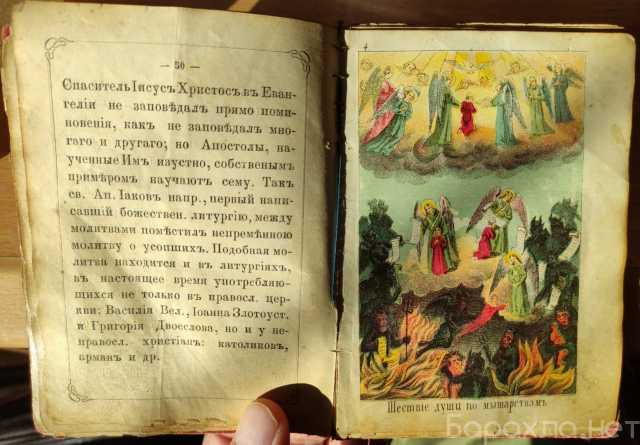 — 50 —
Спаситель Іисусъ Христосъ въ Еван-
геліи не заповѣдалъ прямо поми-
новенія, какъ не заповѣдалъ мно-
гаго и другаго; но Апостолы, на-
ученные Имъ изустно, собственымъ
примѣромъ научаютъ сему. Такъ
св. Ап. Іаковъ напр., первый напи-
савшій божествен. литургію, между
молитвами помѣстилъ непремѣнною
молитву о усопшихъ. Подобная мо-
литва находится и въ литургіяхъ,
въ настоящее время употребляю-
щихся не только въ правосл. цер-
кви: Василія Вел., Іоанна Златоуст.
и Григорія Двоеслова, но и у не-
правосл. христіанъ: католиковъ,
арман и др.
Шествіе души по мытарствамъ
Барохло.нет